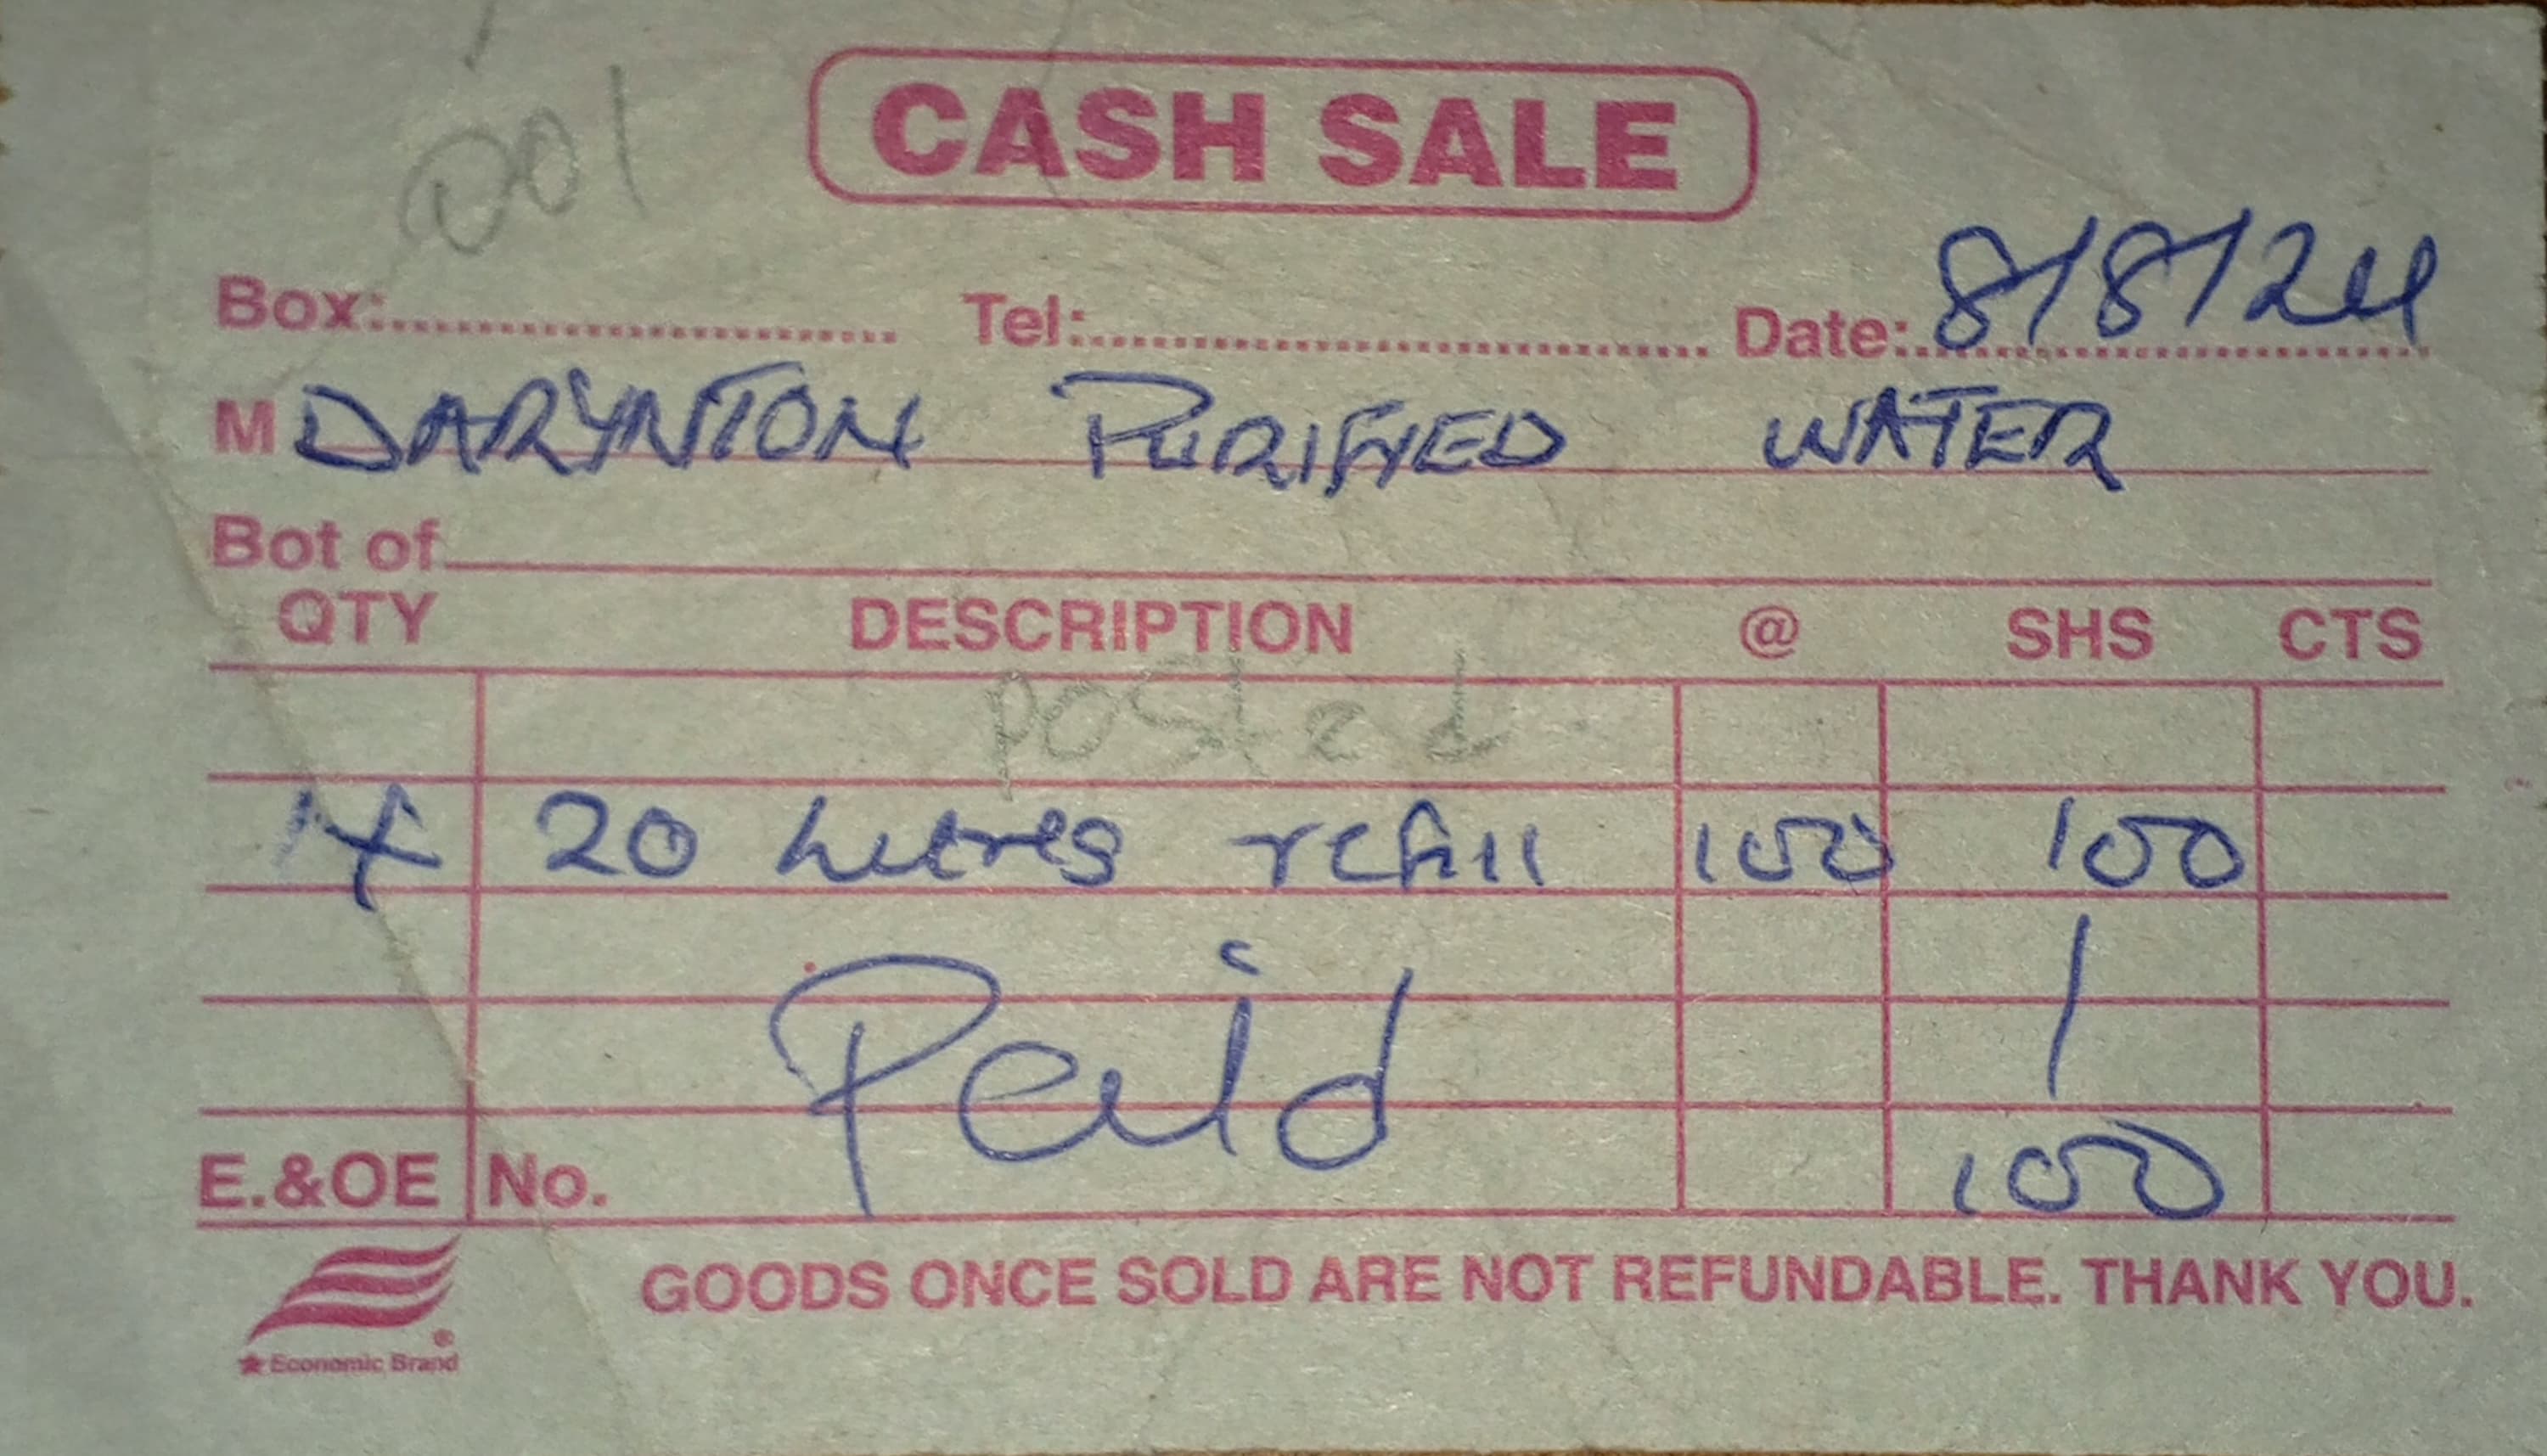 001
CASH SALE
Box: Tel: Date: 8/8/24
M DARYNTON PURIFIED WATER
Bot of
QTY DESCRIPTION @ SHS CTS
posted
1X 20 Litres refill 100 100
Paid
E.&OE No. 100
GOODS ONCE SOLD ARE NOT REFUNDABLE. THANK YOU.
® Economic Brand